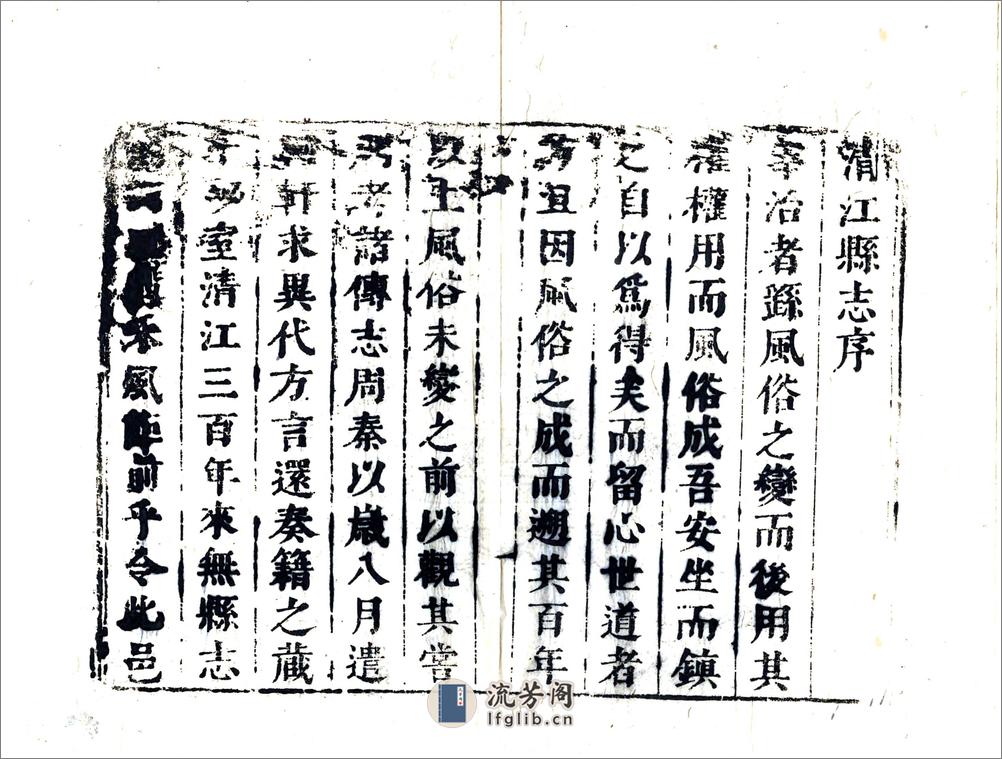 清江縣志序
治者繇風俗之變而後用其
權權用而風俗成吾安坐而鎮
之自以爲得矣而留心世道者
且因風俗之成而遡其百年
以上風俗未變之前以觀其嘗
考諸傳志周秦以歲八月遣
軒求異代方言還奏籍之藏
室清江三百年來無縣志
風 前乎令此邑
流芳阁
lfglib.cn